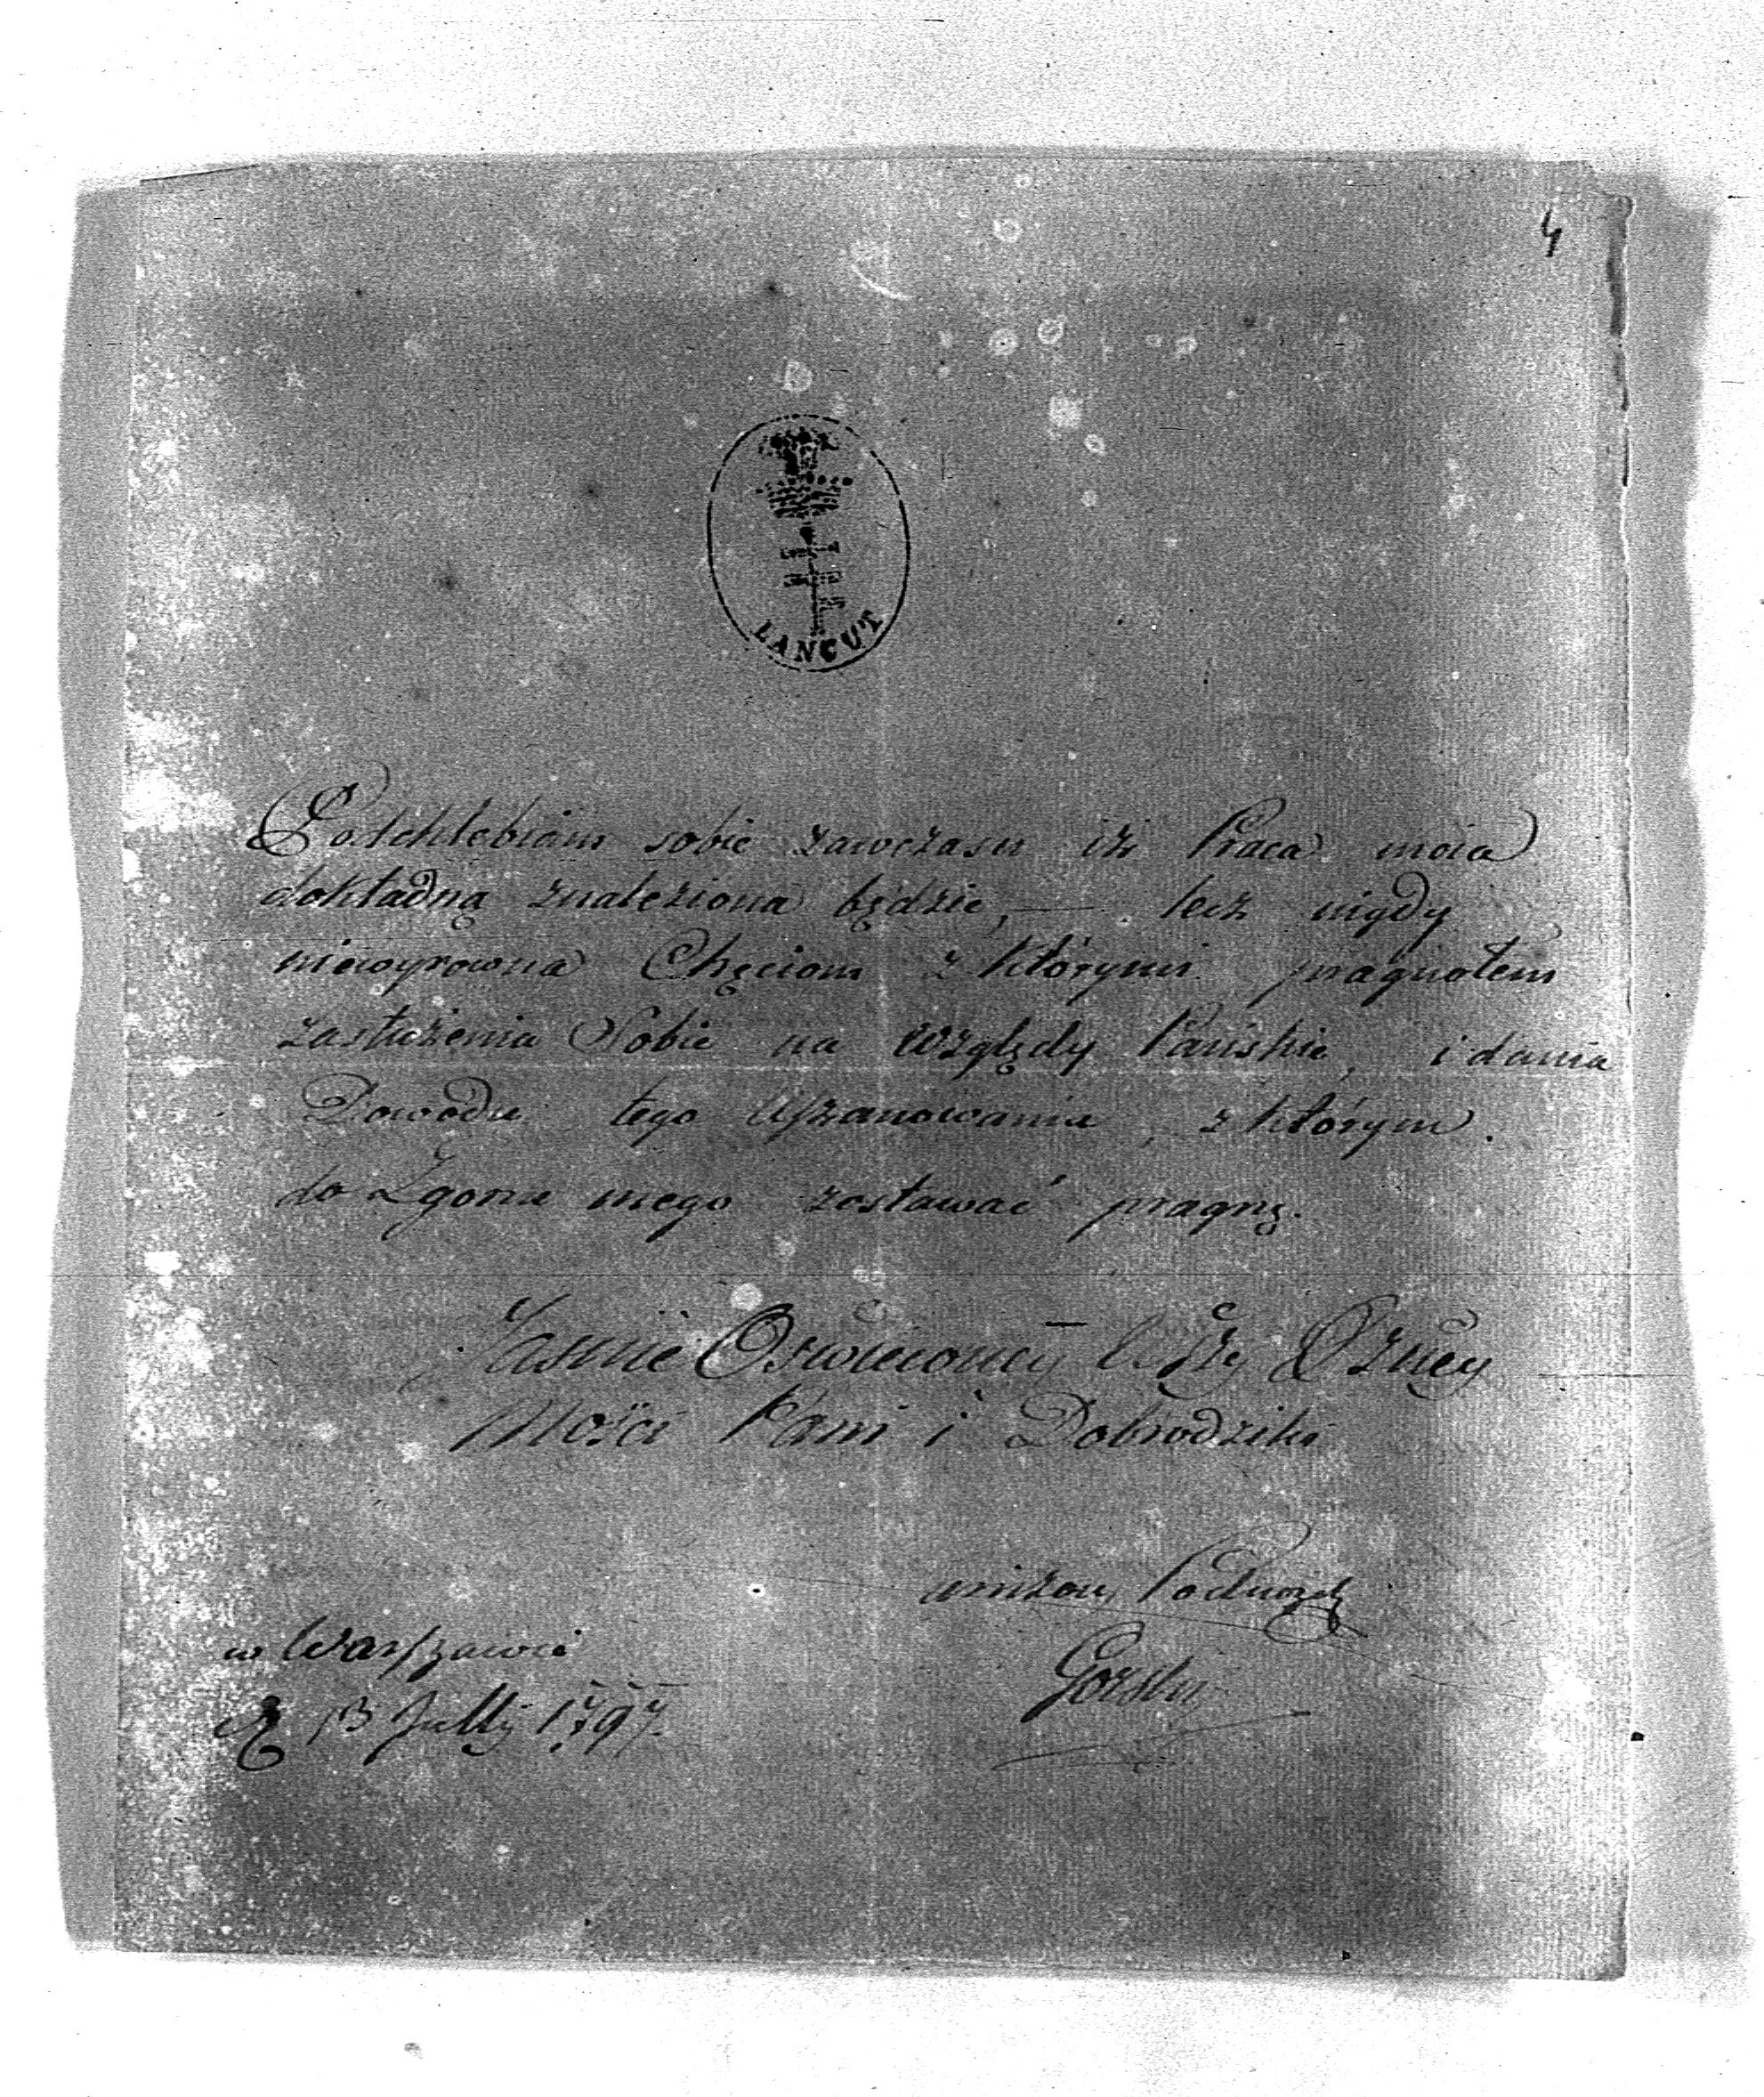 4
LANCUT
Potchlebiam sobie zawczasu iż Praca moia
dokładną znaleziona będzie, — lecz nigdy
niewyrowna Chęciom z którymi pragnołem
zasłużenia Sobie na Względy Pańskie, i dania
Dowodu tego Uszanowania, z którym
do Zgonu mego zostawać pragnę.
Jasnie Oswieconey
Mośći Pani i Dobrodziki
unizony
Gorski
w Warszawie
13 Julij 1797.